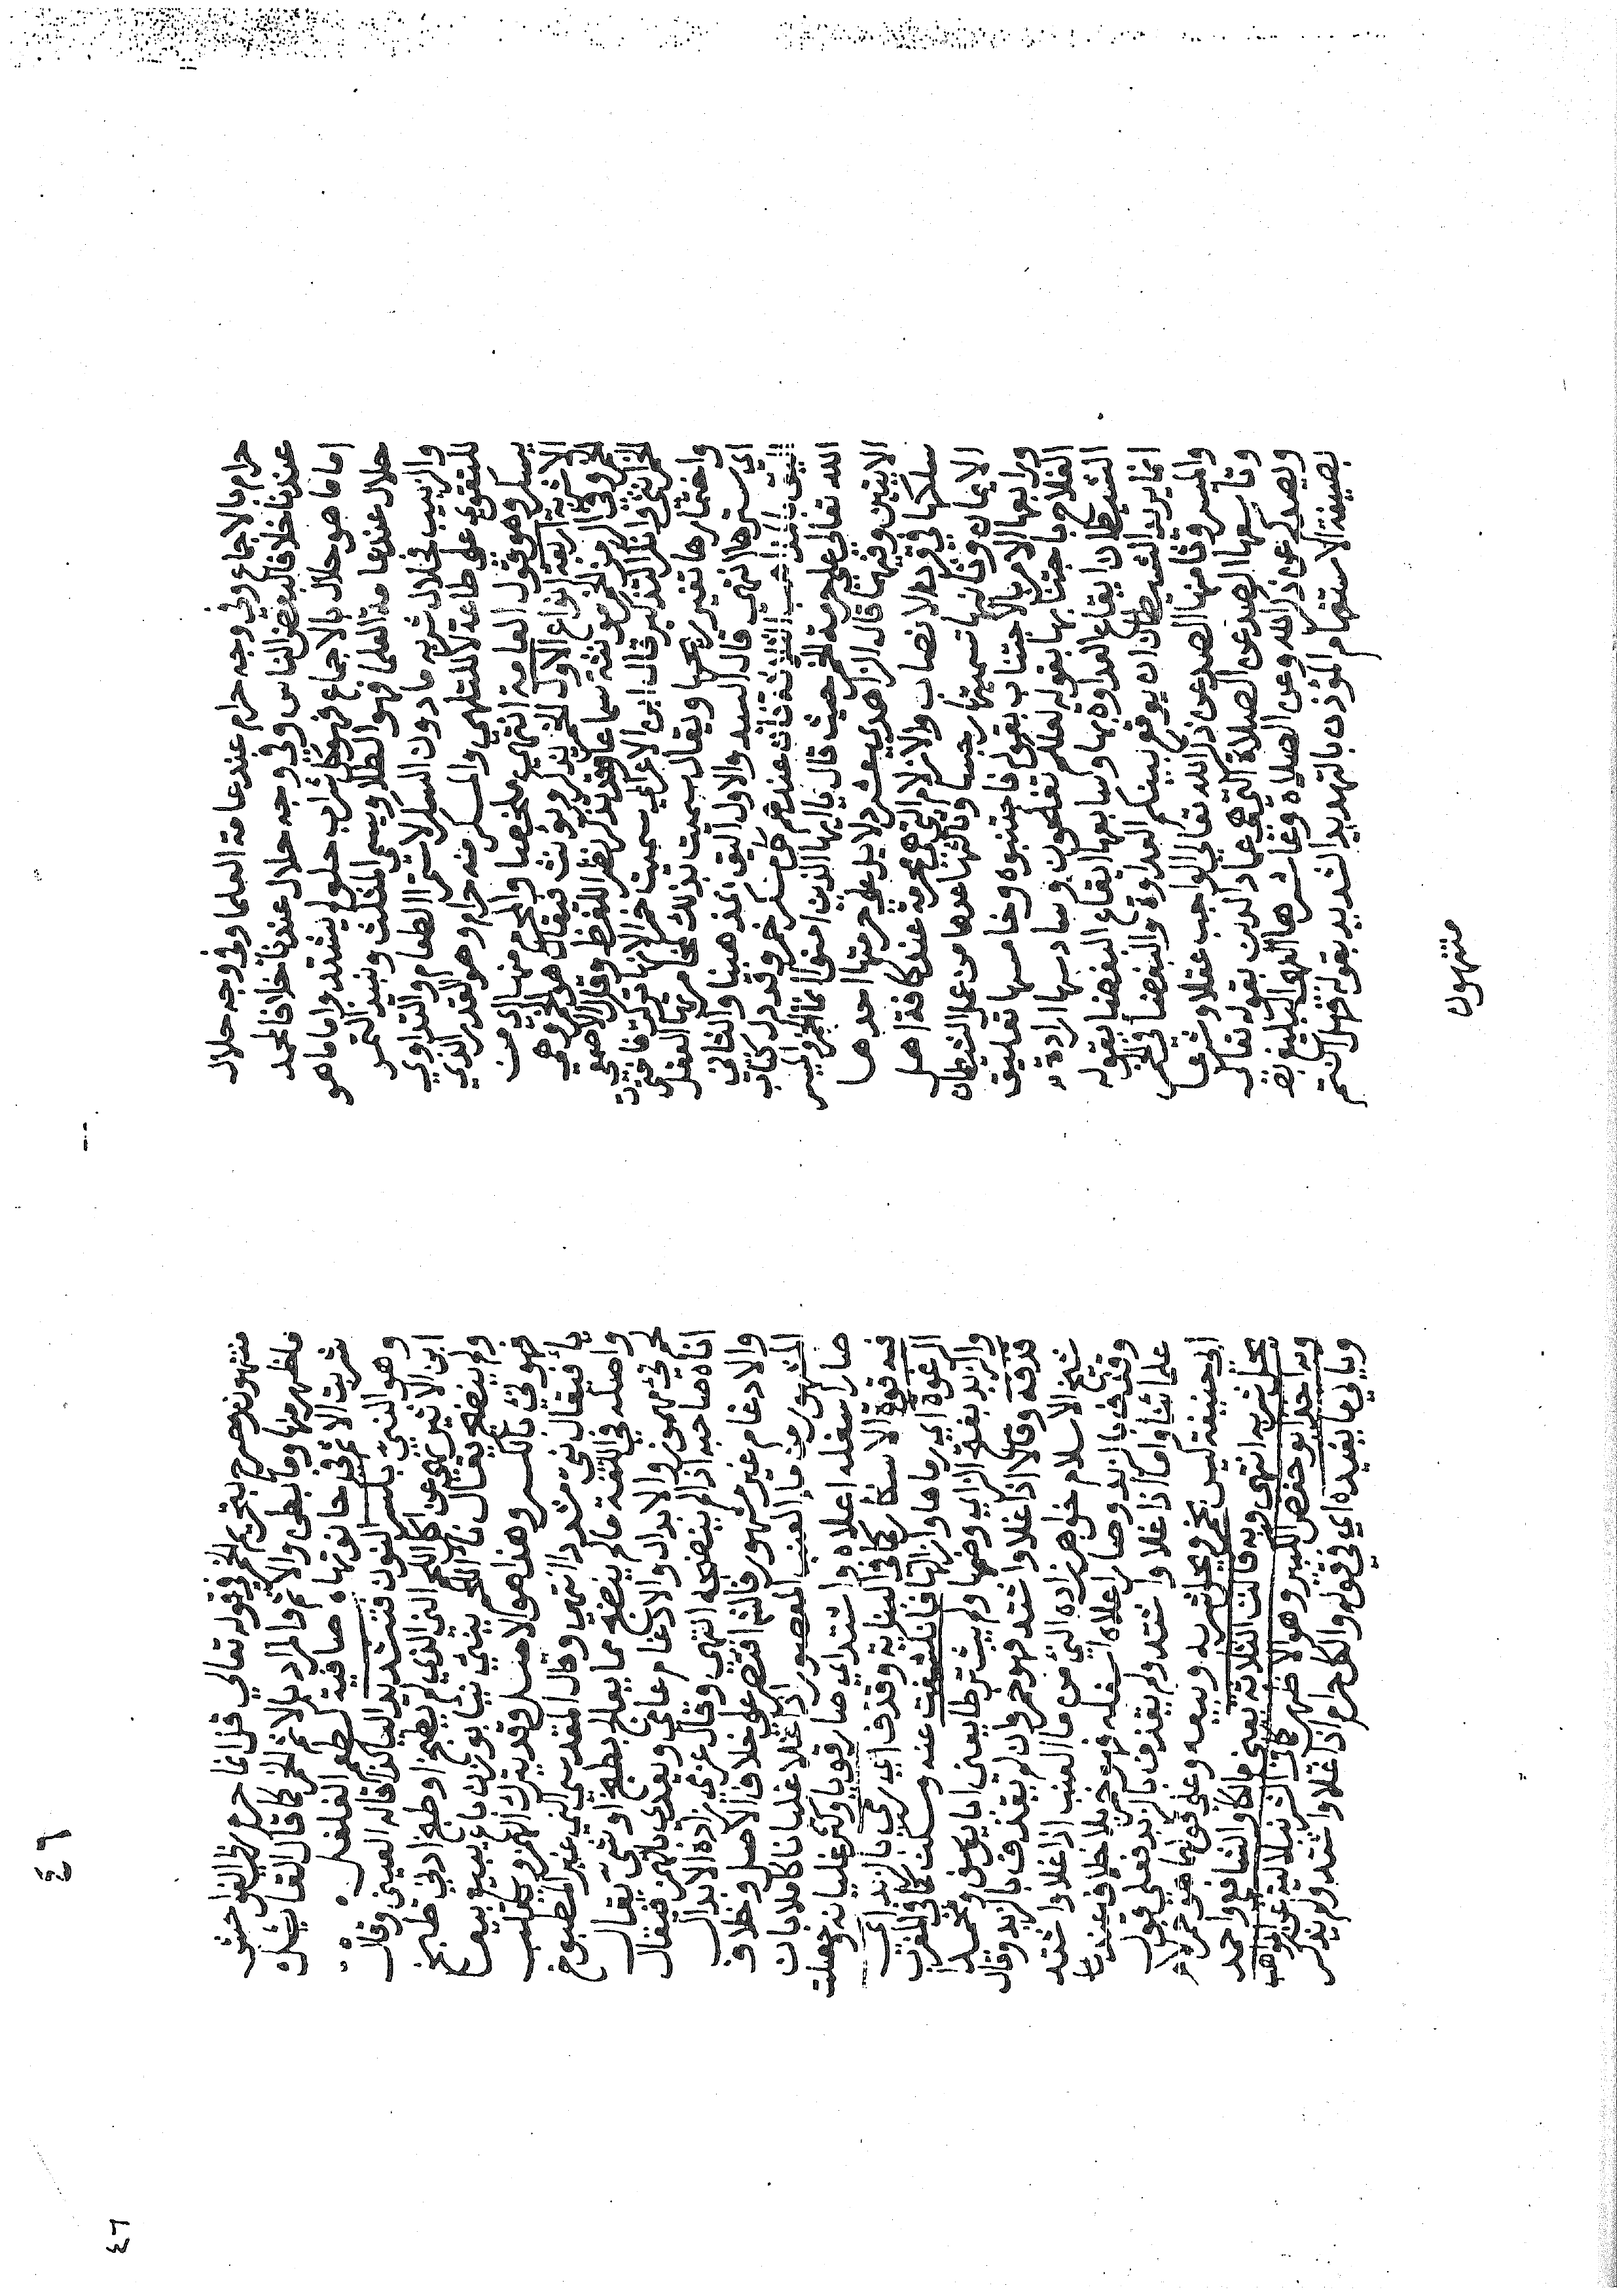 حرام بالاجماع وفي وجه حرام عند عامة العلما وفي وجه حلال
عندنا خلافا لبعض الناس وفي وجه حلال عندنا خلافا لمحمد
اما ما هو حلال بالاجماع فهو كل شراب حلو لم يشتد واما ما هو
حلال عند عامة العلما فهو الطلا ويسمى المثلث ونبيذ التمر
والزبيب فحلال شربه ما دون السكر لاستمرا الطعام والتداوي
للتقوي على طاعة لا للتلهي والمسكر منه حرام وهو القدر الذي
يسكر وهو قول العامة انتهى ملخصا والمحرم منها اي من
الاشربة اربعة انواع الاول الخمر يذكر ويؤنث فيقال هو الخمر وهي
الخمر وفي الرمز الخمر مؤنثة سماعا وقد يذكر نظرا للفظ وقال الاصمعي
الخمر انثى وانكر التذكير قال ابن الاعرابي سميت خمرا لانها تركت فاختمرت
واختمارها تغير ريحها ويقال سميت بذلك لمخامرتها العقل
اي سترها انتهى قال السيد والاول اليق بمذهبنا والثاني
اليق بمذهب الثلاثة عندهم كل مسكر خمر وقد دل كتاب
الله تعالى على حرمة الخمر حيث قال يا ايها الذين امنوا انما الخمر والميسر
الايتين وفيهما قال الزاهدي عشر دلايل على حرمتها احدها
سلكها في قرن الانصاب والازلام التي هي محرمة عند كافة اهل
الايمان وثانيها تسميتها رجسا وثالثها عدها من عمل الشيطان
ورابعها الامر بالاجتناب بقوله فاجتنبوه وخامسها تعليق
الفلاح باجتنابها بقوله لعلكم تفلحون وسادسها ارادة
الشيطان ايقاع العداوة بها وسابعها ايقاع البغضا بقوله
انما يريد الشيطان ان يوقع بينكم العداوة والبغضا في الخمر
والميسر وثامنها الصد عن ذكر الله تعالى الواجب عقلا وشرعا
وتاسعها الصد عن الصلاة التي هي عماد الدين بقوله تعالى
ويصدكم عن ذكر الله وعن الصلاه وعاشرها النهي البليغ
بصيغة الاستفهام المؤذن بالتهديد الشديد بقوله فهل انتم
منتهون
٤٦
منتهون وصرح بتحريم الخمر في قوله تعالى قل انما حرم ربي الفواحش
ما ظهر منها وما بطن والاثم والمراد بالاثم الخمر كما قال القائل
شربت الاثم في حانوتها صافية لطعم الفلفل
وهو الني بكسر النون فتشديد الياكذا قاله العيني وقال
ابن الاثير نهى عن اكل اللحم الني الذي لم يطبخ او طبخ ادنى طبخ
ولم ينضج يقال ناء اللحم ينيئ نيئا بوزن باع يبيع بيعا
فهو نيئ بالكسر وهذا هو الاصل وقد يترك الهمز ويقلب
يا فيقال نيّ مشددا انتهى وقال المقدسي الني غير المطبوخ
واصله في اللغة ما لم ينضج مما يعالج بطبخ او شي يقال
لحم نيئ مهموز والابدال والادغام عامي ويعدى بالهمز فيقال
اناه صاحبه اذا لم ينضجه انتهى وقال عزمي زاده الابدال
والادغام غير مشهور فالشارح اقتصر على خلاف الاصل وخلاف
المشهور من ماء العنب المعصور اذا غلا غليانا كاملا بان
صار اسفله اعلاه واشتد اي صار قويا وكثر غليانه وحصلت
فيه قوة الاسكار كما في البناية وقذف اي رمى بالزبد اي
الرغوة اي رماها وازالها فانكشفت عنه وسكنت كما في المغرب
والزبد بفتح الزاي وضمها ولم يشترطا يعني ابا يوسف ومحمد
قذفه وقالا اذا غلا واشتد فهو خمر وان لم يقذف بالزبد وقال
شيخ الاسلام خواهر زاده الني من ما العنب اذا غلا واشتد
وقذف بالزبد وصار اعلاه اسفله فهو خمر بلا خلاف بين
علمائنا واما اذا غلا واشتد ولم يقذف بالزبد فعلى قول
ابي حنيفة ليس بخمر ويحل شربه وبيعه وعلى قولهما هو خمر لا
يحل شربه انتهى وبه قالت الثلاثة يعني مالكا والشافعي واحمد
وبه اخذ ابو حفص الكبير وهو الاظهر كما في الشرنبلالية عن المواهب
وياتي ما يفيده اي في قوله والكل حرام اذا غلا واشتد ولم يذكر
٤٦